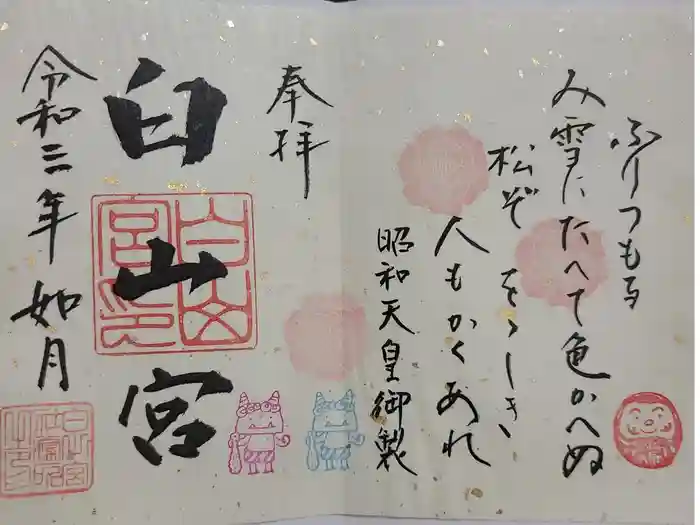 ふりつもる
み雪にたへて色かへぬ
松ぞをゝしき
人もかくあれ
昭和天皇御製
奉拝
白山宮
白山宮印
令和三年 如月